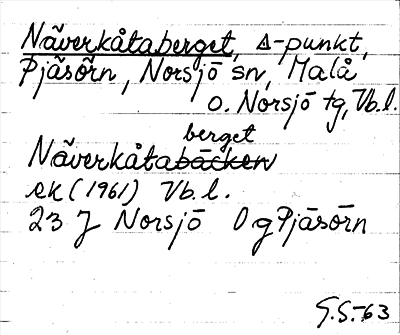 Näverkåtaberget, Δ-punkt,
Pjäsörn, Norsjö sn, Malå
o. Norsjö tg, Vb.l.
berget
Näverkåtabäcken
ek (1961) Vb.l.
23 J Norsjö 0 g Pjäsörn
G.S.-63